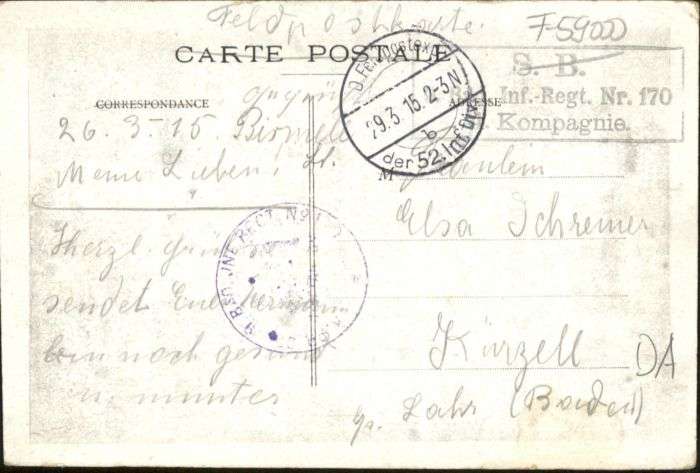 Feldpostkarte.
F 59000
CARTE POSTALE
S. B.
Inf.-Regt. Nr. 170
Kompagnie.
CORRESPONDANCE
ADRESSE
D. Feldpostexp.
29.3.15. 2-3 N
b
der 52. Inf. Div.
26. 3. 15.
Meine Lieben!
Herzl. Grüße
sendet Euch Hermann
bin noch gesund
u. munter
M
Fräulein
Elsa Schreiner
Kürzell
DA
Lahr (Baden)
9. BAD. INF. REGT. No 170